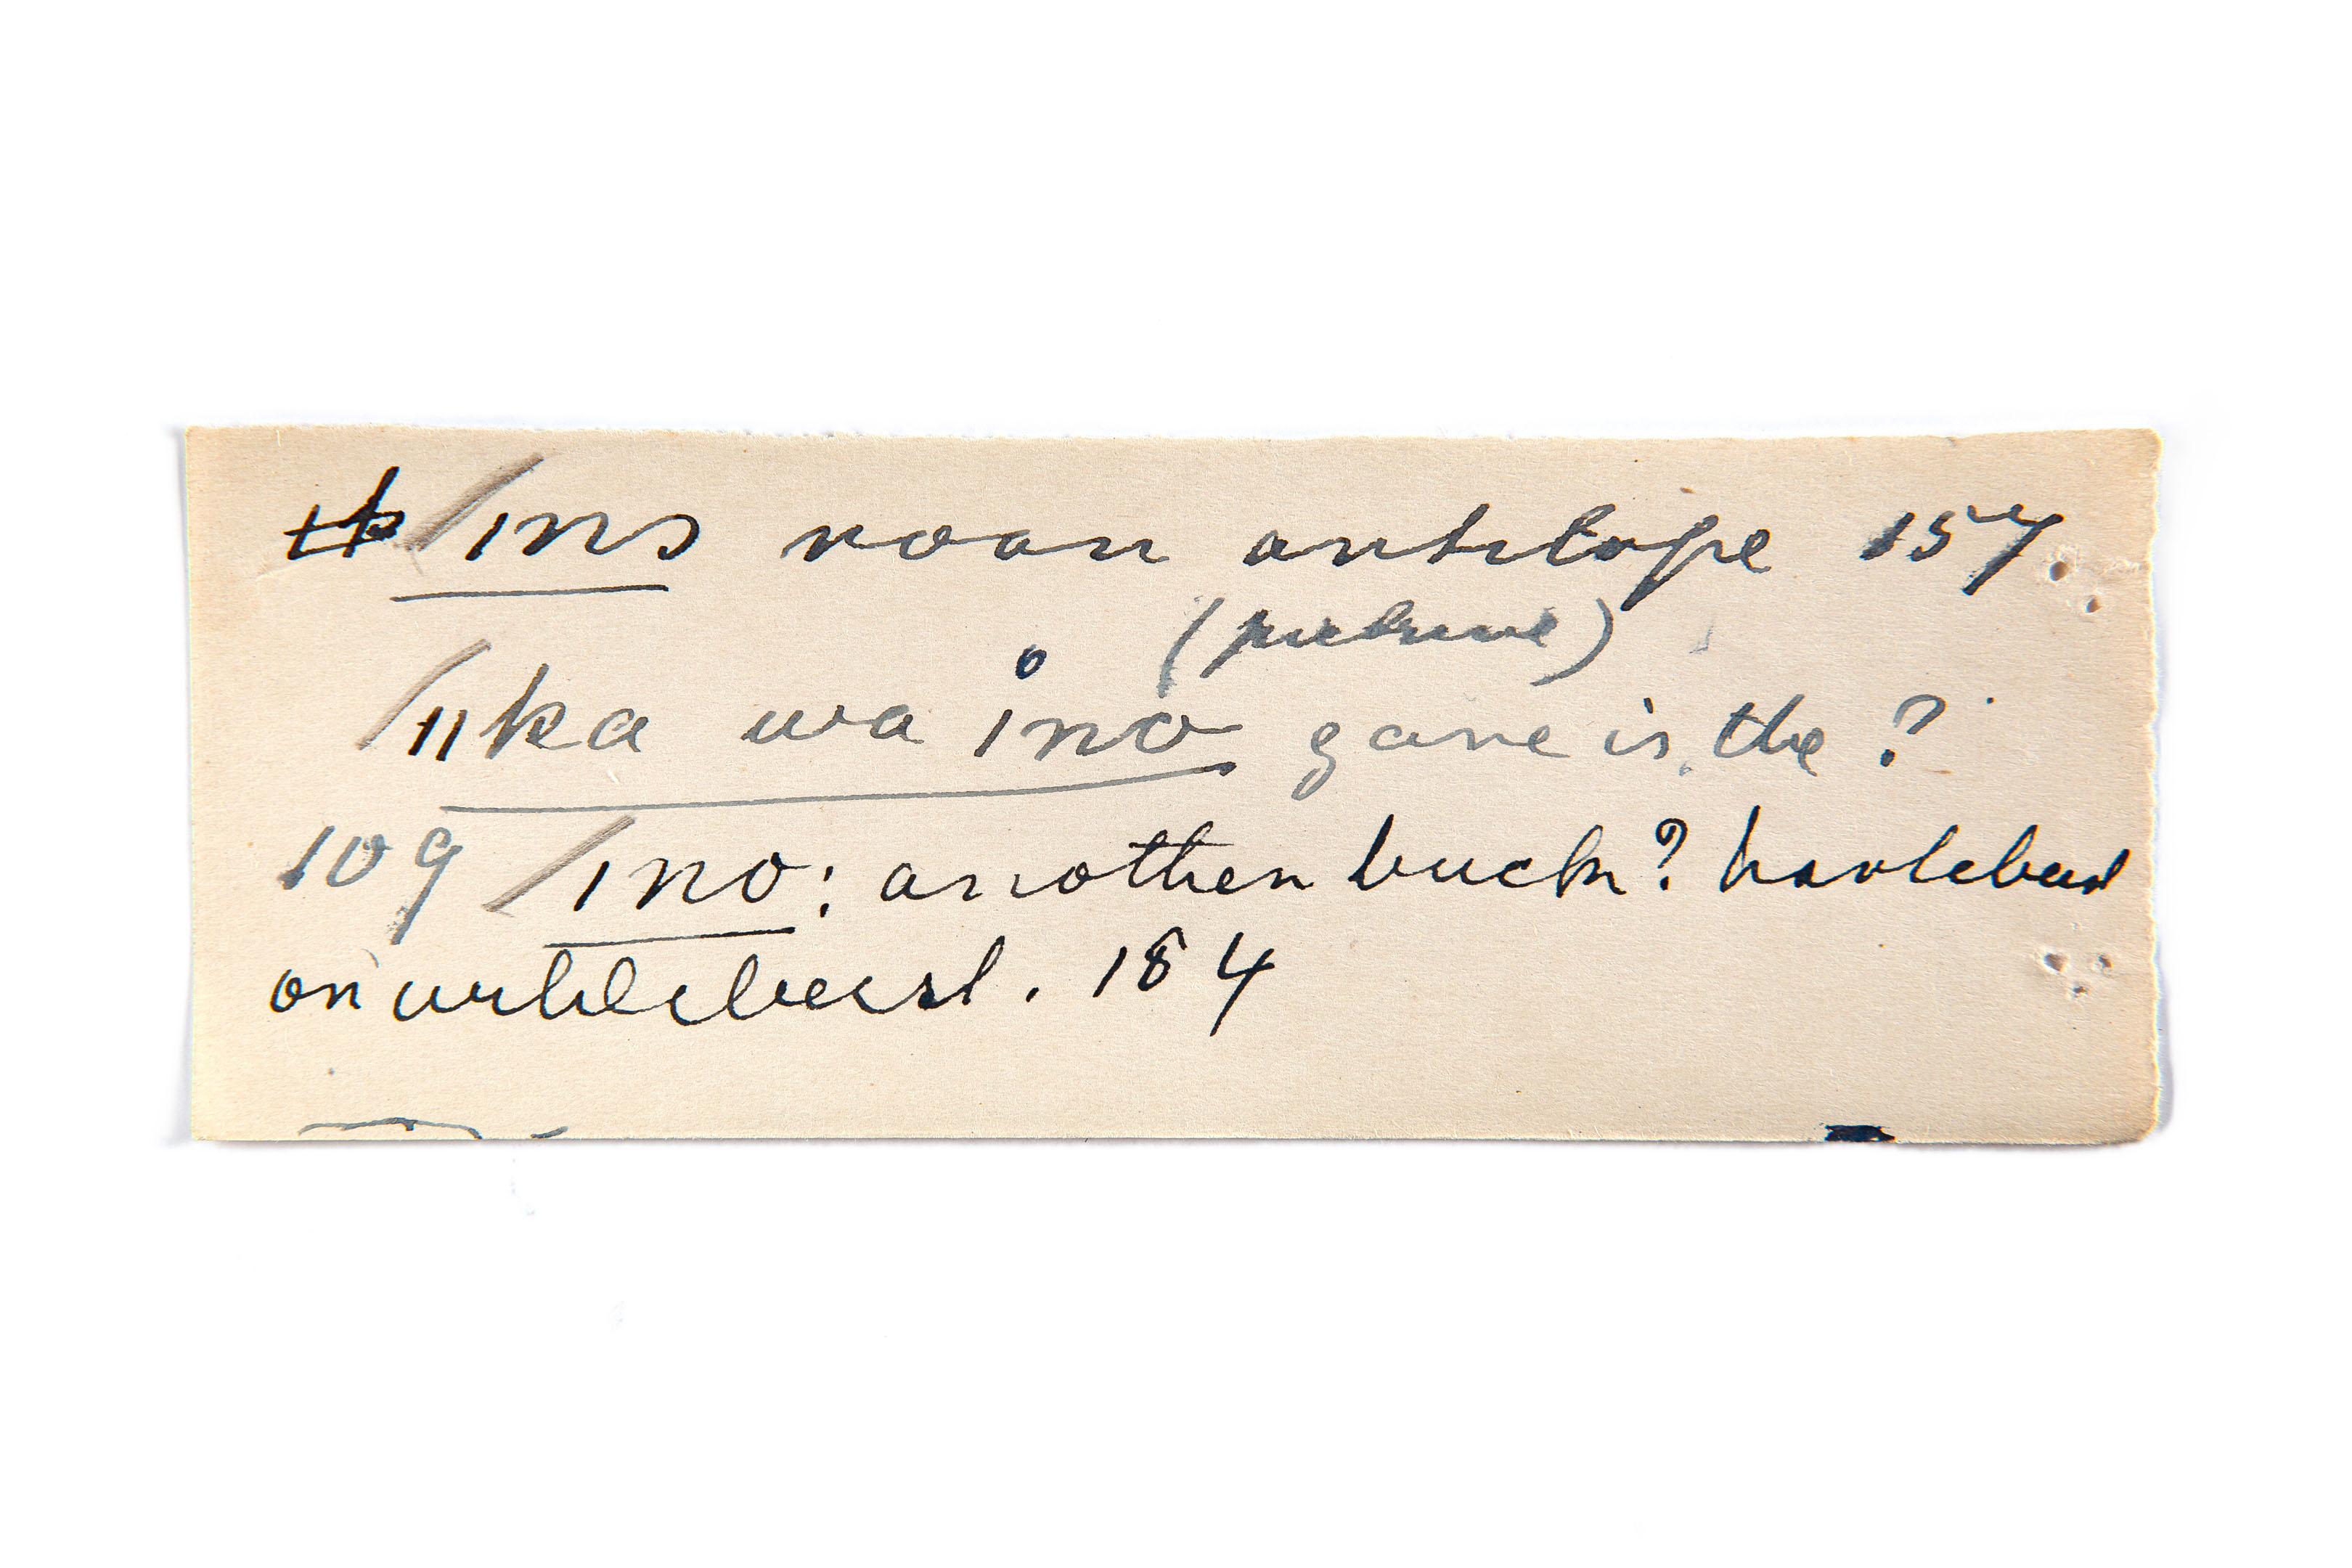 /ınɔ roan antelope 157
(picture)
/ıı ka wa ı̊no gone is the ?
109 /ıno: another buck? hartebeest
or wildebeest. 184